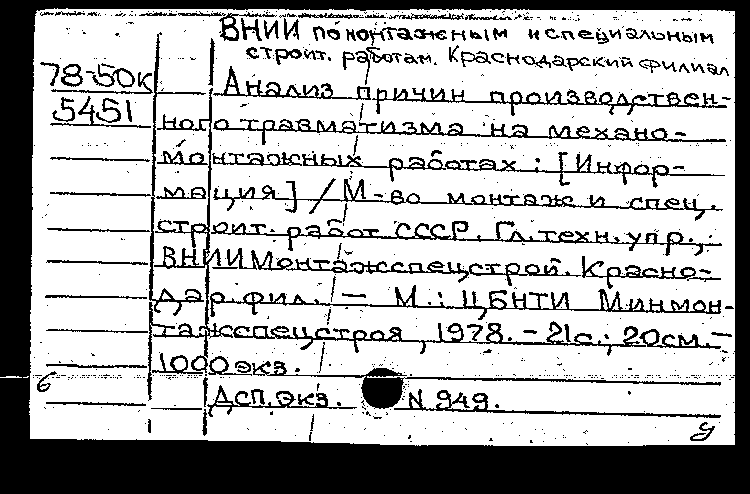 ВНИИ по монтажным и специальным
строит. работам. Краснодарский филиал
78-50к Анализ причин производствен-
5451 ного травматизма на механо-
монтажных работах : [Инфор-
мация] / М-во монтаж и спец.
строит. работ СССР. Гл. техн. упр.,
ВНИИМонтажспецстрой. Красно-
дар. фил. — М. : ЦБНТИ Минмон-
тажспецстроя, 1978. - 21 с.; 20 см. —
1000 экз.
6 Дсп. экз. N 949.
У